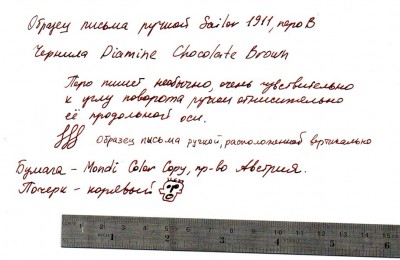 Образец письма ручкой Sailor 1911, перо B
Чернила Diamine Chocolate Brown
Перо пишет необычно, очень чувствительно
к углу поворота ручки относительно
её продольной оси.
Образец письма ручкой, расположенной вертикально
Бумага – Mondi Color Copy, пр-во Австрия.
Почерк – корявый
1 2 3 4 5 6